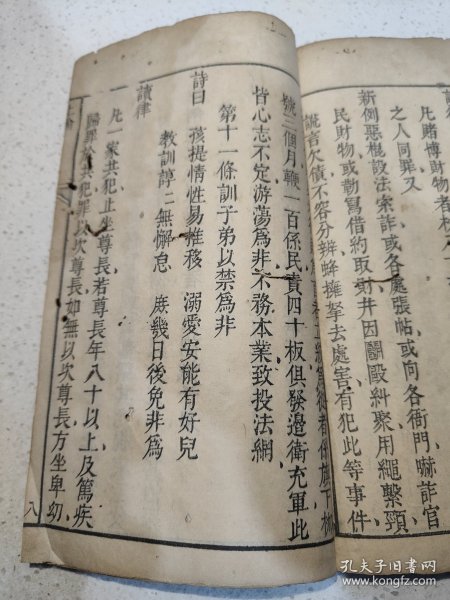 凡賭博財物者
之人同罪又
新例惡棍設法索詐或各處張帖或向各衙門嚇詐官
民財物或勒寫借約取財并因鬭毆糾聚用繩繫頸
謊言欠債不容分辨蜂擁拏去處害有犯此等事件
號三個月鞭一百係民責四十板俱發邊衛充軍此
皆心志不定游蕩爲非不務本業致投法網
第十一條訓子弟以禁爲非
詩曰 孩提情性易推移 溺愛安能有好兒
教訓諄二無懈怠 庶幾日後免非爲
讀律
凡一家共犯止坐尊長若尊長年八十以上及篤疾
歸罪於共犯罪以次尊長如無以次尊長方坐卑幼
八
孔夫子旧书网
www.kongfz.com